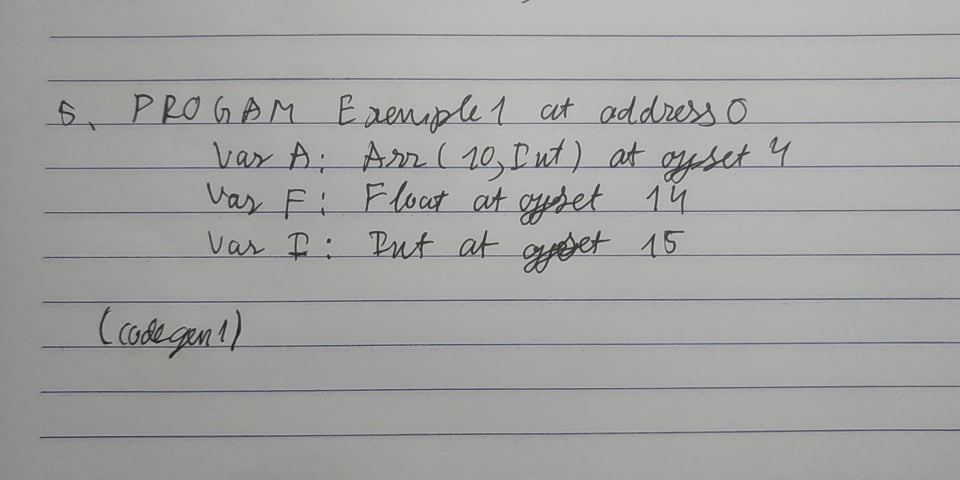 5, PROGAM Example 1 at address 0
Var A: Arr(10, Int) at offset 4
Var F: Float at offset 14
Var I: Int at offset 15
(codegen1)